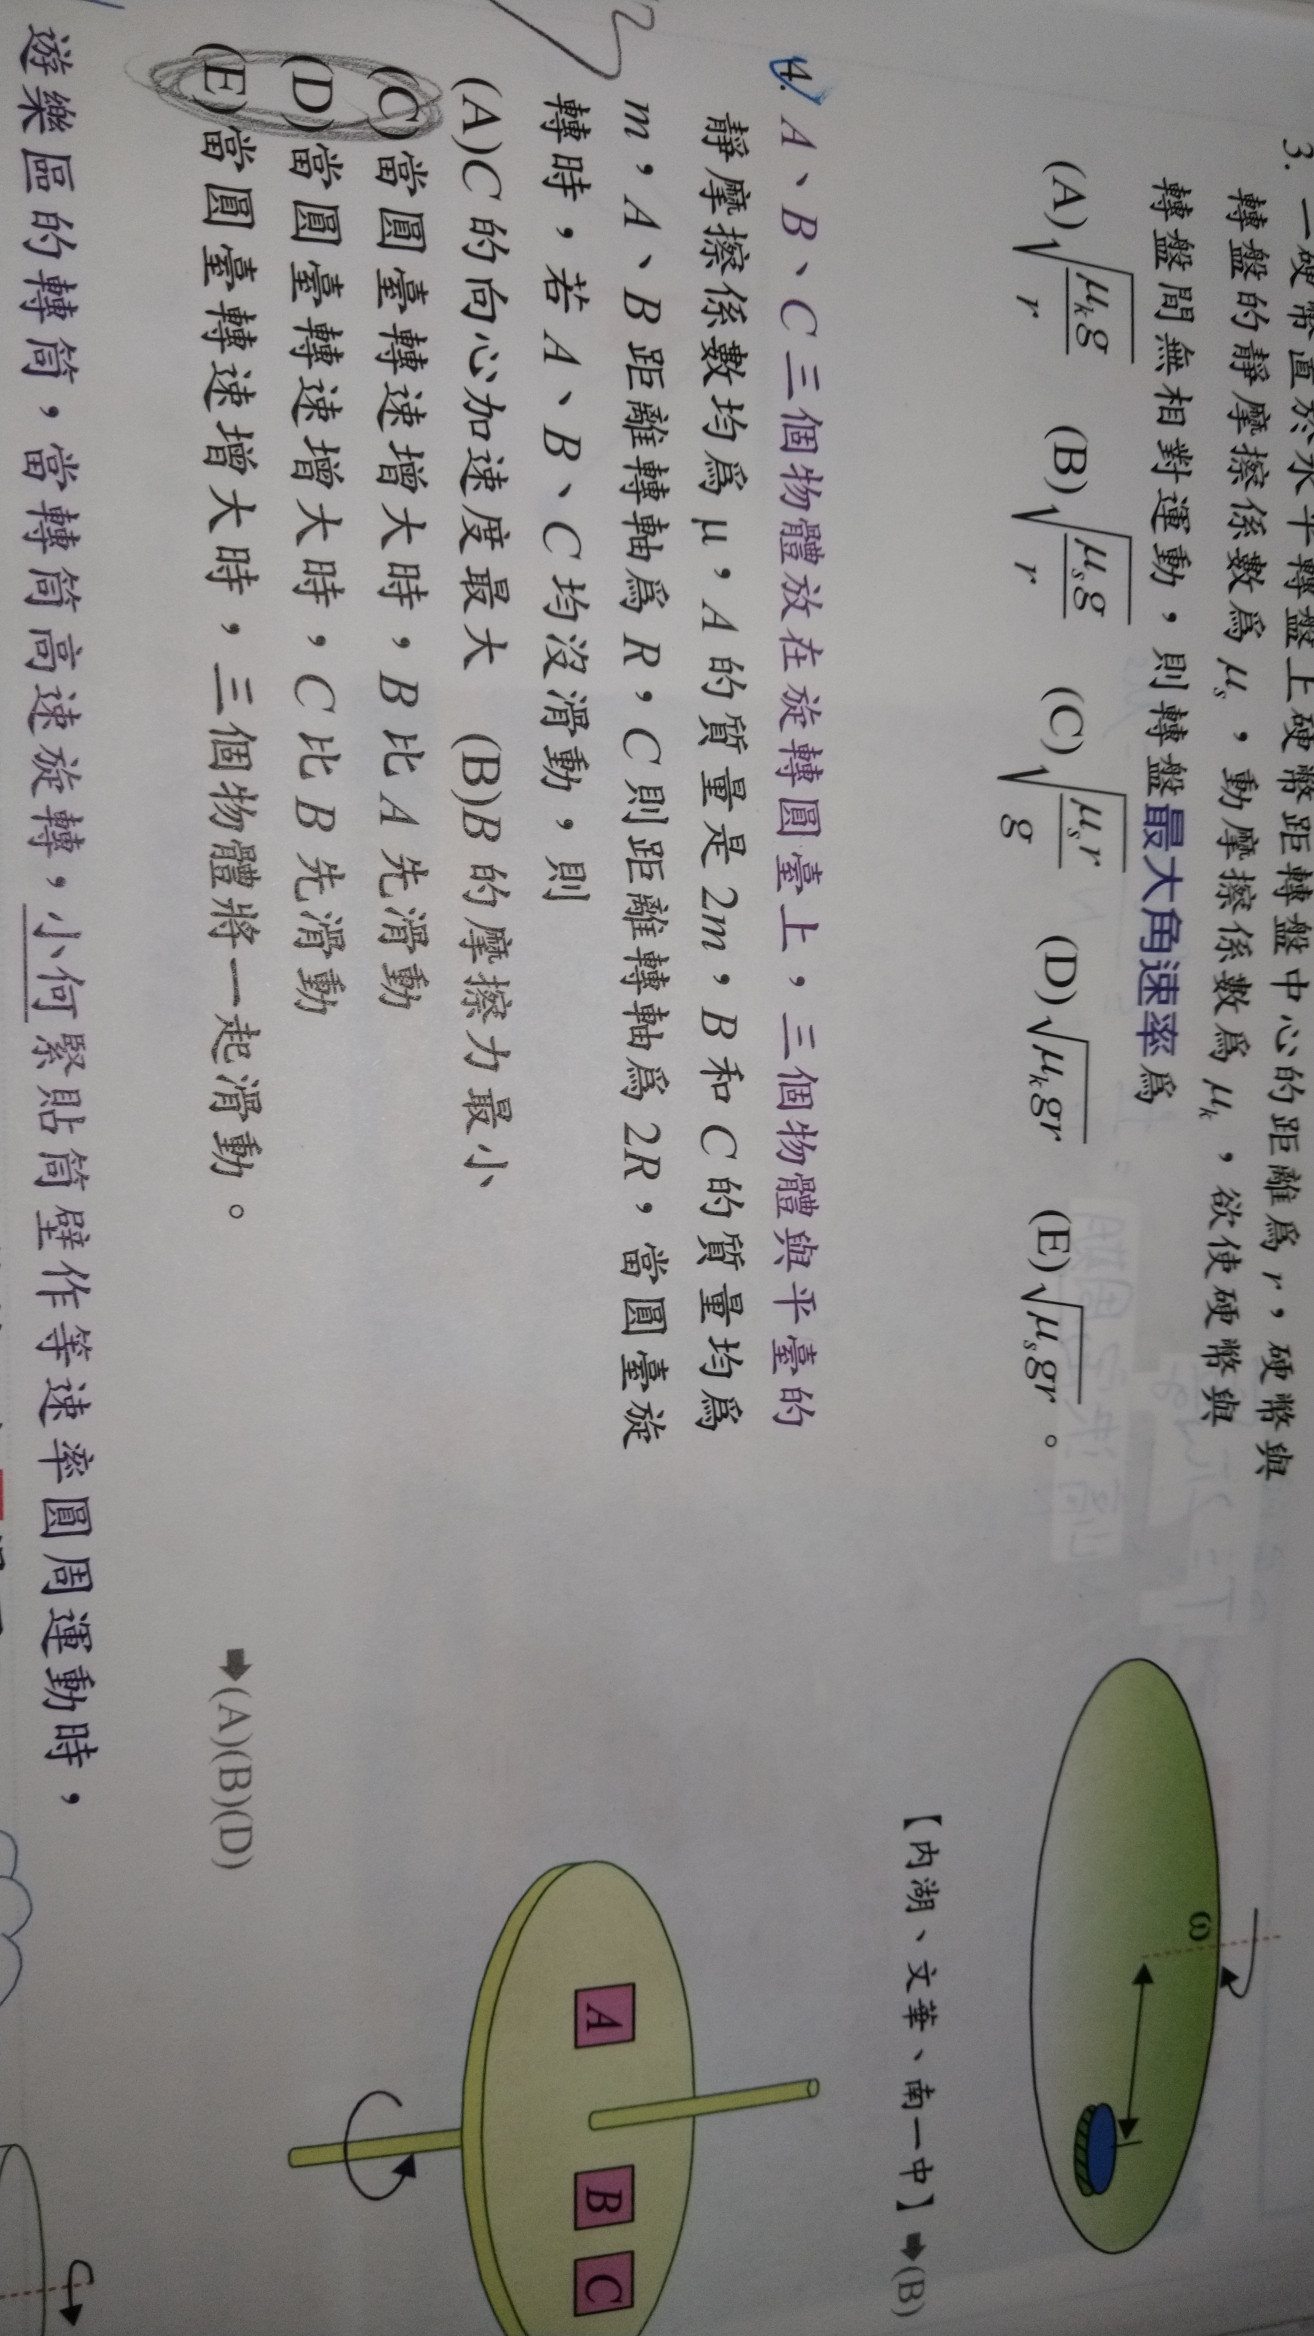 3. 一硬幣置於水平轉盤上硬幣距轉盤中心的距離為 r，硬幣與
轉盤的靜摩擦係數為 μₛ，動摩擦係數為 μₖ，欲使硬幣與
轉盤間無相對運動，則轉盤最大角速率為
(A)√(μₖg/r) (B)√(μₛg/r) (C)√(μₛr/g) (D)√(μₖgr) (E)√(μₛgr)。
ω
【內湖、文華、南一中】➡(B)
4. A、B、C 三個物體放在旋轉圓臺上，三個物體與平臺的
靜摩擦係數均為 μ，A 的質量是 2m，B 和 C 的質量均為
m，A、B 距離轉軸為 R，C 則距離轉軸為 2R，當圓臺旋
轉時，若 A、B、C 均沒滑動，則
(A)C 的向心加速度最大 (B)B 的摩擦力最小
(C)當圓臺轉速增大時，B 比 A 先滑動
(D)當圓臺轉速增大時，C 比 B 先滑動
(E)當圓臺轉速增大時，三個物體將一起滑動。
➡(A)(B)(D)
A B C
遊樂區的轉筒，當轉筒高速旋轉，小何緊貼筒壁作等速率圓周運動時，